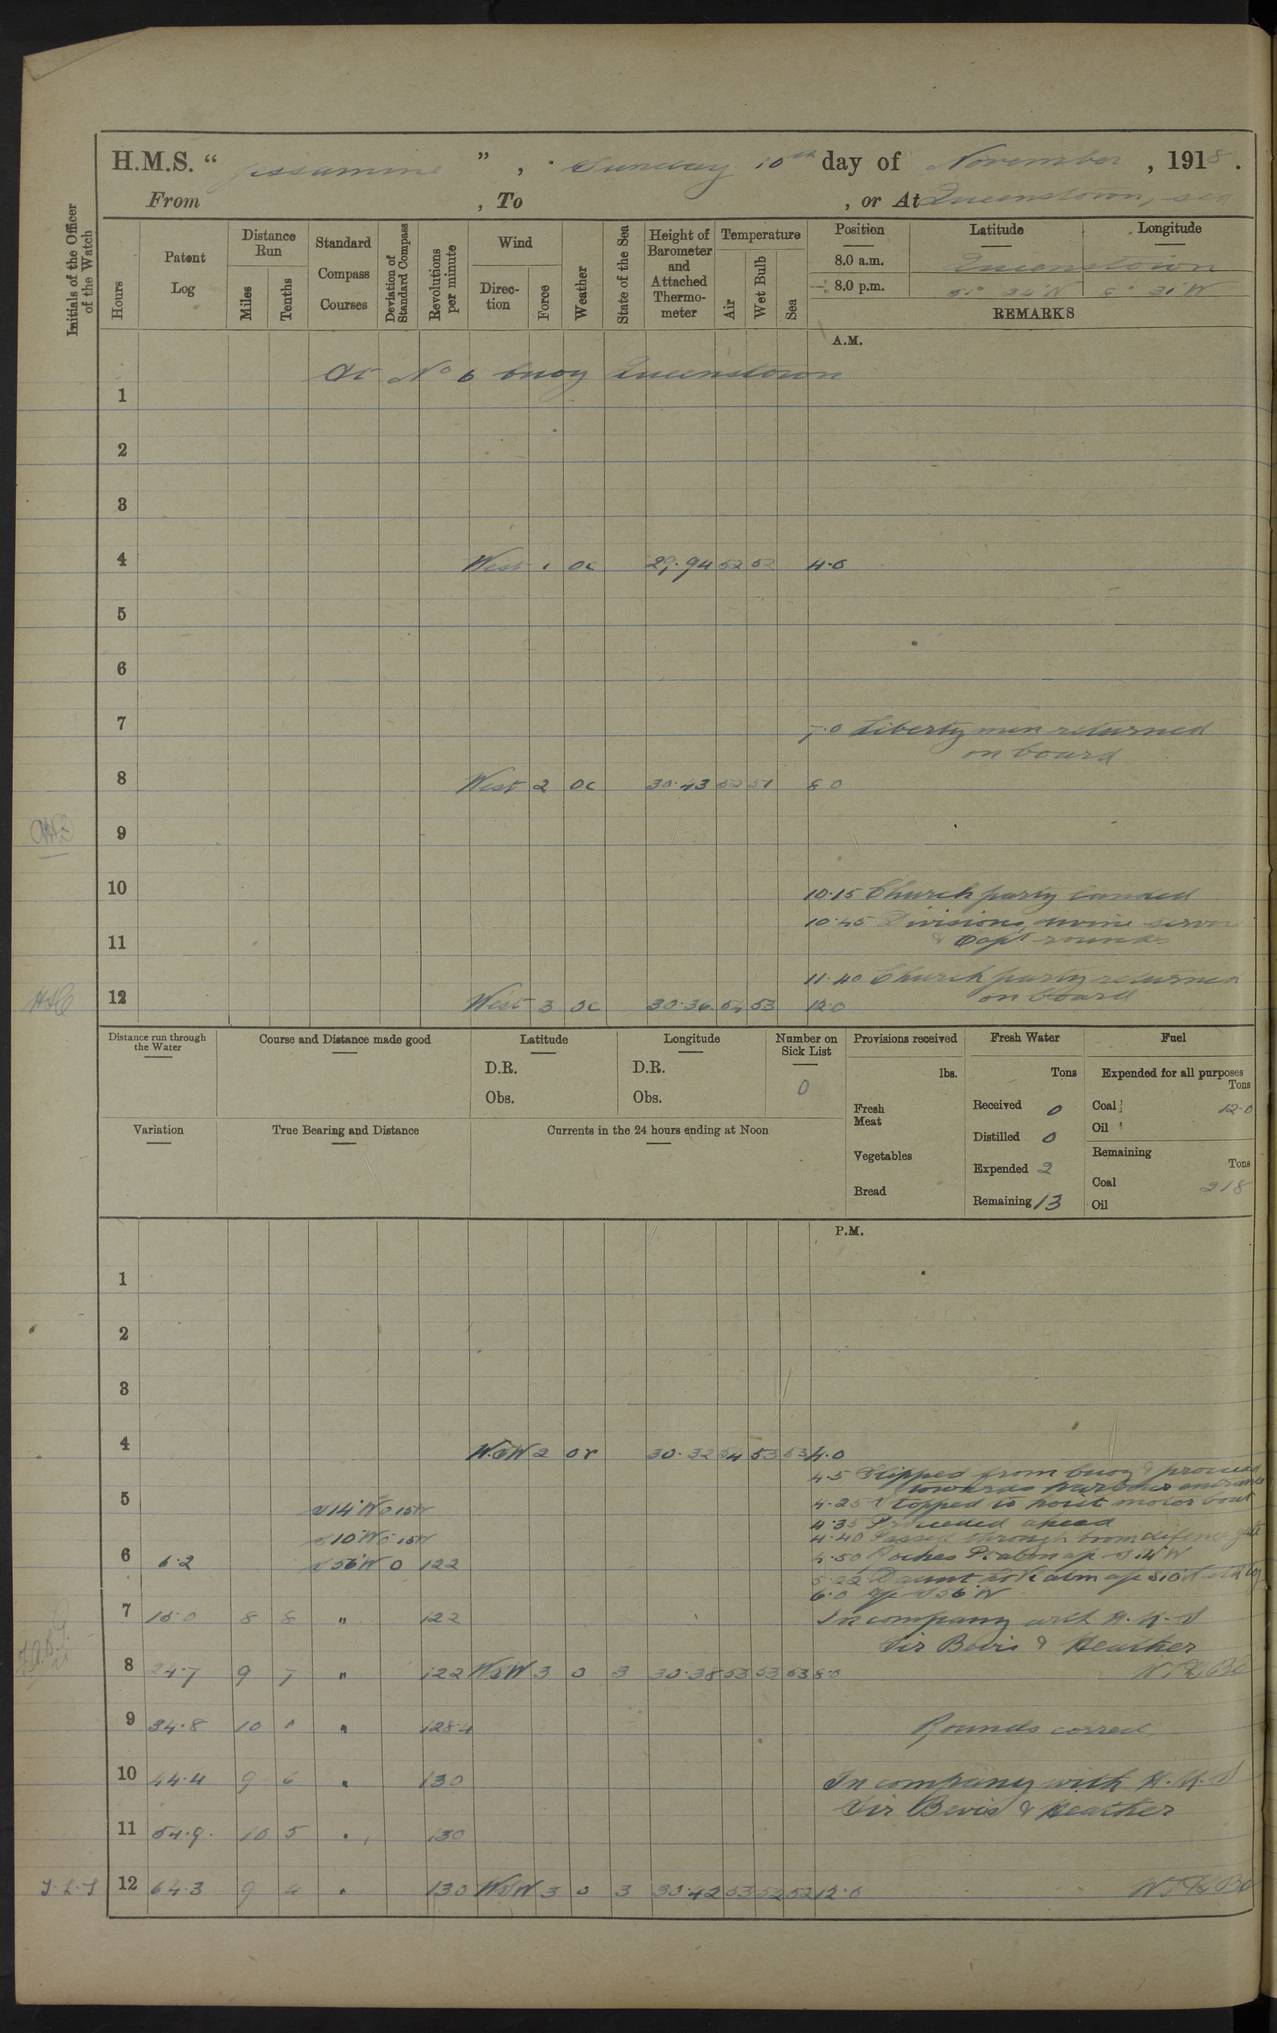 H.M.S. “ Jessamine ” , Sunday 10th day of November , 1918 .
From , To , or At Queenstown, sea
Initials of the Officer of the Watch
Hours
Patent Log
Distance Run
Miles
Tenths
Standard Compass Courses
Deviation of Standard Compass
Revolutions per minute
Wind
Direction
Force
Weather
State of the Sea
Height of Barometer and Attached Thermometer
Temperature
Air
Wet Bulb
Sea
Position Latitude Longitude
8.0 a.m. Queenstown
8.0 p.m. 51° 34'N 8° 31'W
REMARKS
A.M.
At No 6 buoy Queenstown
1
2
3
4 West 1 oc 29.94 52 52 4.0
5
6
7 7.0 Liberty men returned
on board
8 West 2 oc 30.43 52 51 8 0
9
10 10.15 Church party landed
10.45 Divisions, divine
11 & Capt rounds
11.40 Church party returned
12 West 3 oc 30.36 54 53 12.0 on board
Distance run through the Water
Course and Distance made good
Latitude
D.R.
Obs.
Longitude
D.R.
Obs.
Number on Sick List
0
Provisions received
lbs.
Fresh Meat
Vegetables
Bread
Fresh Water
Tons
Received 0
Distilled 0
Expended 2
Remaining 13
Fuel
Expended for all purposes
Tons
Coal 12.0
Oil
Remaining
Tons
Coal 218
Oil
Variation
True Bearing and Distance
Currents in the 24 hours ending at Noon
P.M.
1
2
3
4 WSW 2 or 30.32 54 53 53 4.0
4.5 Slipped from buoy & proceed
towards harbour entrance
5 S14°W 0 4.25 Stopped to hoist motor boat
4.35 Proceeded ahead
S10°W 4.40 Passed through boom defence gate
6 6.2 S56°W 0 122 4.50 Roches Pt abm a/c S 14 W
5.22 Daunt Rk abm a/c
6.0 a/c S56°W
7 15.0 8 8 " 122 In company with H.M.S
Sir Bevis & Heather
8 24.7 9 7 " 122 WSW 3 o 3 30.38 53 53 53 8.0
9 34.8 10 1 " 128.4 Rounds correct
10 44.4 9 6 " 130 In company with H.M.S
Sir Bevis & Heather
11 54.9 10 5 " 130
12 64.3 9 4 " 130 WSW 3 o 3 30.42 53 52 52 12.0